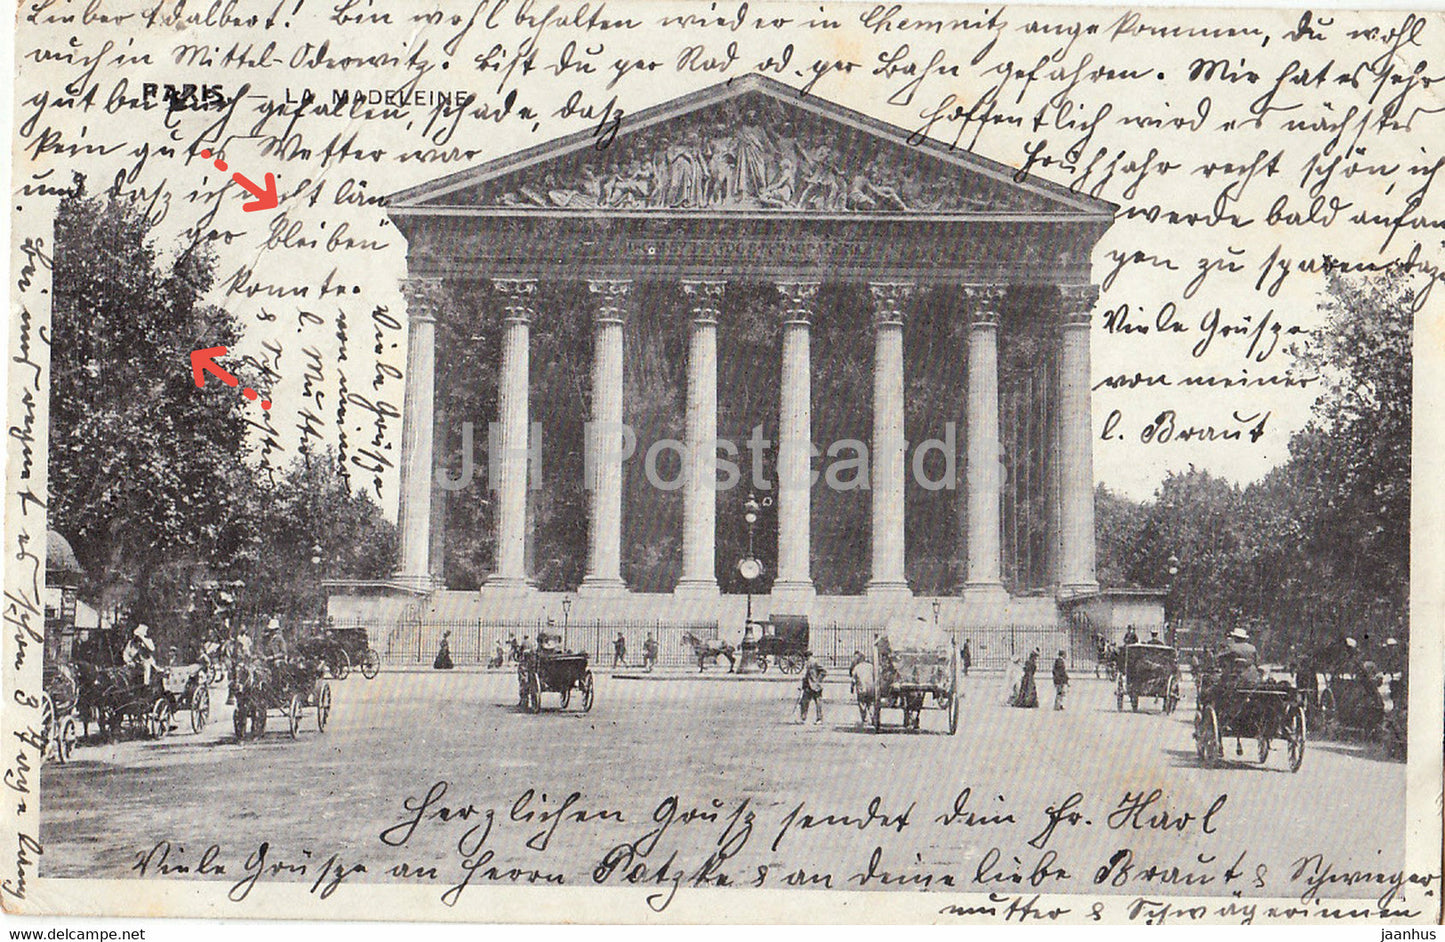 Lieber Adalbert! Bin wohl behalten wieder in Chemnitz angekommen, Du wohl
auch in Mittel-Oderwitz. Bist Du per Rad od. per Bahn gefahren. Mir hat es sehr
PARIS — LA MADELEINE
gut bei Euch gefallen, schade, dasz
kein gutes Wetter war
und dasz ich nicht län
ger bleiben
konnte.
hoffentlich wird es nächstes
Frühjahr recht schön, ich
werde bald anfan
gen zu sparen dazu
Viele Grüsze
von meiner
l. Braut
Viele Grüsze
von meiner
l. Mutter
& Schwester
Bei uns regnet es schon 3 Tage lang
JH Postcards
Herzlichen Grusz sendet Dein Fr. Karl
Viele Grüsze an Herrn Patzke & an deine liebe Braut & Schwieger-
mutter & Schwägerinnen
www.delcampe.net
jaanhus